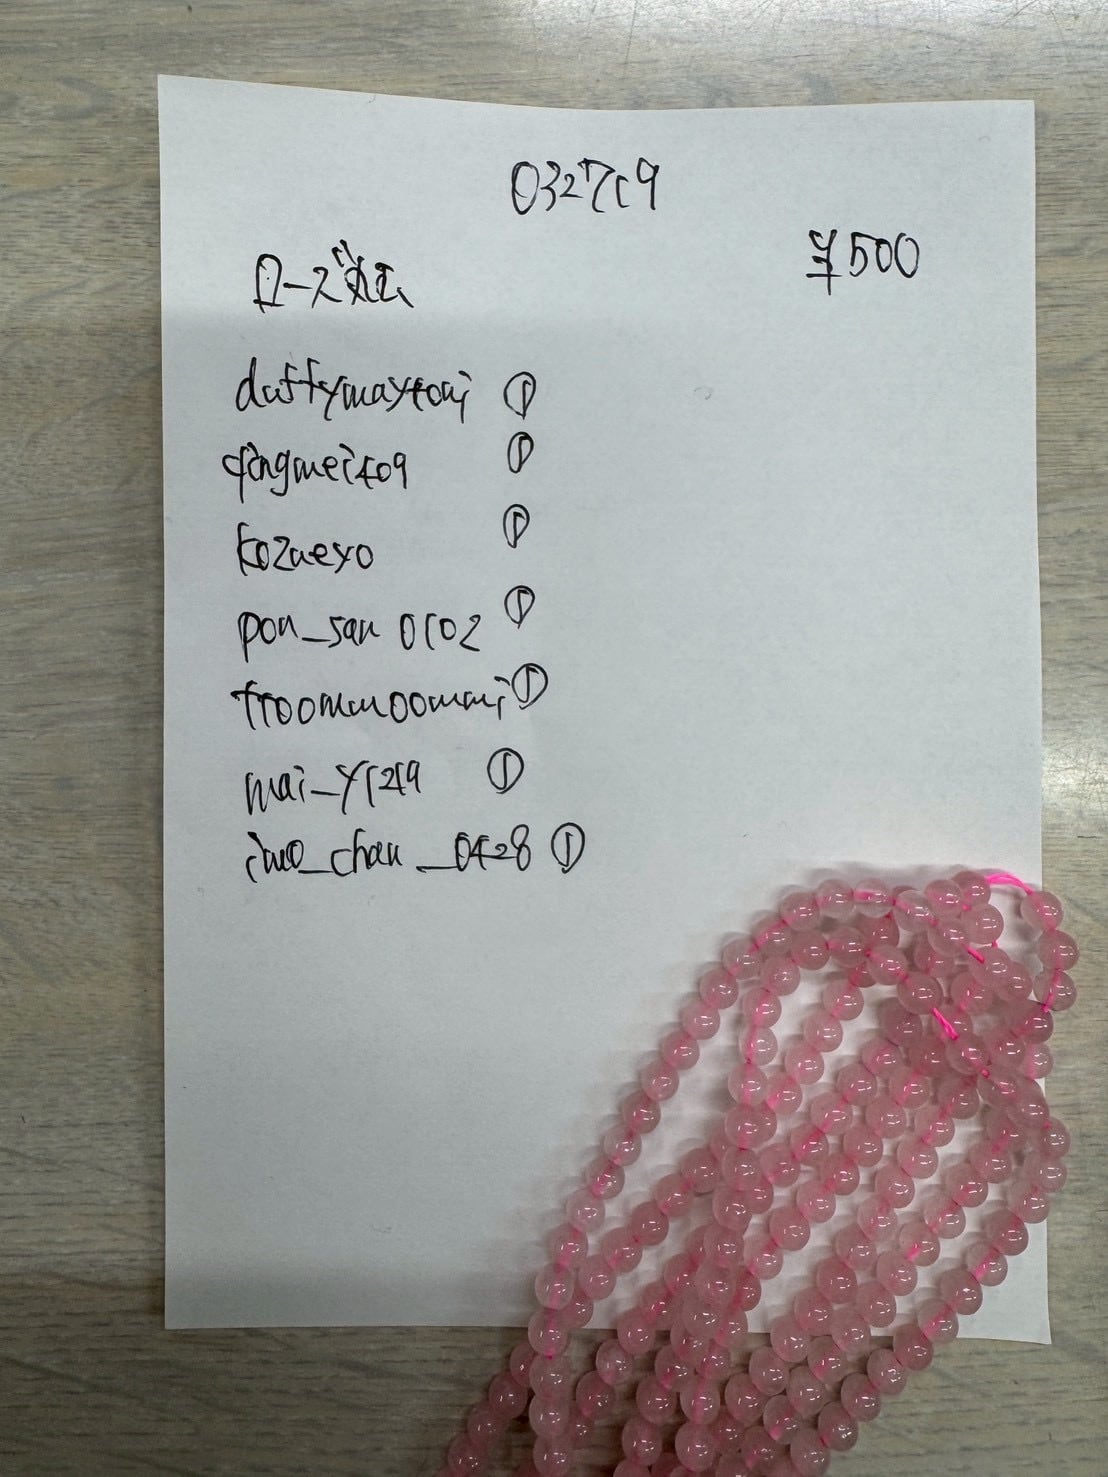 032719
¥500
ローズ
duffymaytomi ①
qingmei409 ①
kozueyo ①
pon_san 0102 ①
froommoommi ①
mai_y1219 ①
chan_0428 ①